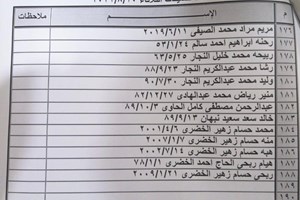 م الإســـم ملاحظات
١٧٦ مريم مراد محمد الصيفي ٢٠١٩/٦/١١
١٧٧ رحنه ابراهيم احمد سالم ٥٣/١/٢٤
١٧٨ ربيحه محمد خليل النجار ٦٣/٥/٢٥
١٧٩ رشا محمد عبدالكريم النجار ٨٨/٩/٢٣
١٨٠ وليد محمد عبدالكريم النجار ٩٠/٧/٣٠
١٨١ منير رياض محمد عبدالهادى ٨٢/١٢/٢٧
١٨٢ عبدالرحمن مصطفى كامل الحاوى ٨٩/١٠/٣
١٨٣ خالد سعد سعيد نبهان ٨٩/٩/١٣
١٨٤ محمد حسام زهير الخضرى ٢٠٠١/٤/٦
١٨٥ منه حسام زهير الخضرى ٢٠٠٧/١/٧
١٨٦ هبه حسام زهير الخضرى ٢٠٠٢/٧/١٤
١٨٧ هيام ربحى الحاج احمد الخضرى ٧٨/١/١
١٨٨ ربحى حسام زهير الخضرى ٢٠٠٩/١/٢١
١٨٩